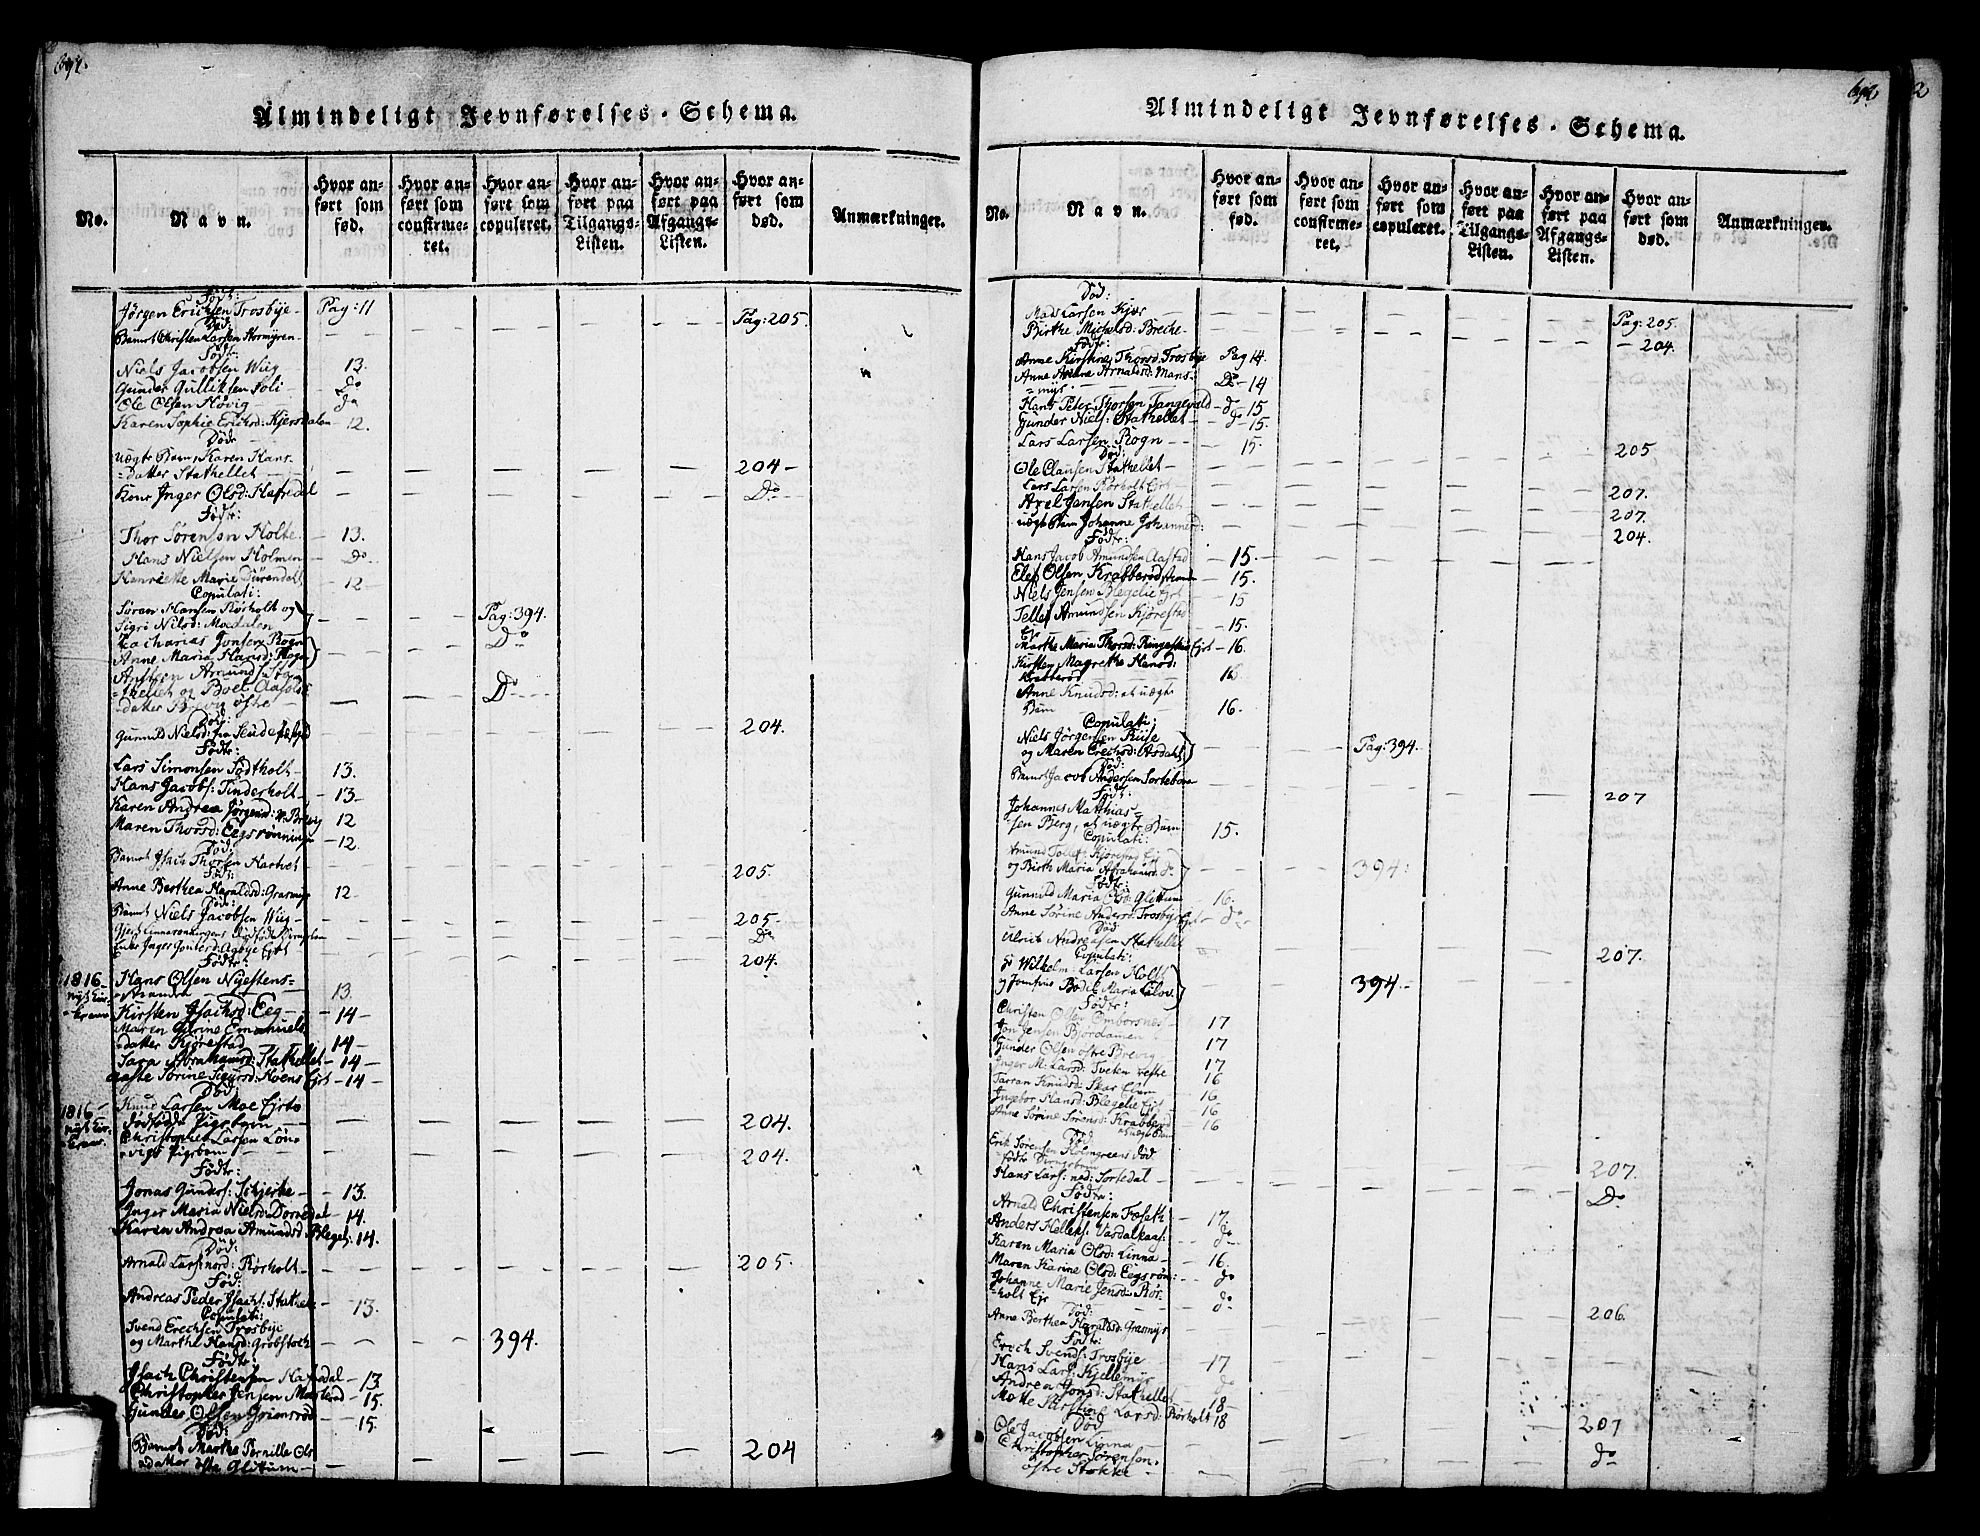 691.
Almindeligt Jevnførelses-Schema.
No.
Navn.
Hvor anført som fød.
Hvor anført som confirmeret.
Hvor anført som copuleret.
Hvor anført paa Tilgangs-Listen.
Hvor anført paa Afgangs-Listen.
Hvor anført som død.
Anmærkninger.
Født:
Jørgen Erichsen Trosbye Pag: 11
Død
Barnet Christen Larsen Stormyren Pag: 205.
Født:
Niels Jacobsen Wiig 13.
Gunder Gulliksen Soli do
Ole Olsen Høvig do
Karen Sophie Erichsd: Kjersdalen 12.
Døde
uægte Barn Karen Hans
datter Stathellet 204
Kone Inger Olsd: Hafredal Do
Født:
Thor Sørensen Holte 13.
Hans Nielsen Holmen Do
Henriette Marie Dürendahl 12
Copulati:
Søren Hansen Rørholt og
Sigri Nilsd: Moedalen Pag: 394.
Zacharias Jonsen Rogn
Anne Maria Hansd: Rogn Do
Amund: Sta
thellet og Boel
datter Brevig østre Do
Død:
Gunnild Nielsd: 204.
Født:
Lars Simonsen Södtholt 13.
Hans Jacobs: Tinderholt 13
Karen Andrea Jørgensd: Brevig 12
Maren Thorsd: Eegsrønningen 12.
Død:
Barnet Isach Thorsen Hartvet 205.
Født:
Anne Berthea Haraldsd: Grasmyr 12
Døde:
Barnet Niels Jacobsen Wiig 205
Do
Enke Inger 204.
Født:
1816 Hans Olsen Nyestens=
13
Kirsten Isachsd: Eeg 14
Maren Emanuels
datter Kjørestad 14
Sara Abrahamsd: Stathellet 14
Aaste Sørine Sigursd: Ejet 14
Død:
1816 Knud Larsen Moe Ejets
dødfødde Pigebarn 204.
Christopher Larsen Løn
vigs Pigebarn 204.
Født:
Jonas Gunders: Skjerke 13.
Inger Maria Nielsd: Dorredal 14.
Karen Andrea Amundsd: Blegeb: 14.
Død:
Arnold Lars: nord: Rørholt 205.
Født:
Andreas Peder Isachs: Stathel: 13.
Copulati:
Svend Erechsen Trosbye
og Marthe Hansd: Grobstock 394.
Født:
Isach Christensen Hafredal 13
Christopher Jensen Mostad 15.
Gunder Olsen Grimsrød 15.
Død:
Barnet Marthe Pernille Ols
datter østre Glittum 204
692
Almindeligt Jevnførelses-Schema.
No.
Navn.
Hvor anført som fød.
Hvor anført som confirmeret.
Hvor anført som copuleret.
Hvor anført paa Tilgangs-Listen.
Hvor anført paa Afgangs-Listen.
Hvor anført som død.
Anmærkninger.
Død:
Mads Larsen Kjær Pag: 205.
Birthe Michelsd: Breche 204.
Født:
Anne Kirstine Thorsd: Trosbye Pag 14.
Anne Arnoldsd: Mans:
=myr. Do 14
Hans Peter Thorsen Tangevald do 15
Gunder Niels: Stathellet do 15.
Lars Larsen Rogn 15.
Død:
Ole Clausen Stathellet 205
Lars Larsen Rørholt Ejet 207.
Axel Jensen Stathellet 207.
uægt Barn Johanne Johannesd: 204.
Født:
Hans Jacob Amundsen Aafsted 15.
Elef Olsen Krabberødstrand 15.
Niels Jensen Blegelie Ejet 15
Tellef Amundsen Kjørestad
Eje 15.
Marthe Maria Thorsd: Ejet 16.
Kirsten Magrethe Hansd:
Krabberød 16
Anne Knudsd: et uægte
Barn 16.
Copulati:
Niels Jørgensen Riise
og Maren Erechsd: Aasdahl Pag: 394.
Død:
Barnet Jacob Andersen Sortebom 207
Født:
Johannes Mathias
sen Berg, et uægte Barn 15.
Copulati:
Amund Tollefs: Kjørestad Eje
og Birthe Maria Abrahamsd: do 394.
Født:
Gunnild Maria Olsd: Glittum 16.
Anne Sørine Andersd: Trosbye Ejet do
Død
Ulrich Andreasen Stathellet 207.
Copulati:
Hr Wilhelm Larsen Holdt
og Jomfrue Bodil Maria 394
Født:
Christen Olsen Omborsnes 17
Jon Jensen Bjørdamen 17
Gunder Olsen østre Brevig 17
Inger M: Larsd: Tveten østre 16
Tarran Knudsd: Skar Eien 16
Ingebor Hansd: Blegelie Ejet 16
Anne Sørine Sørensd: Krabberød 16
Død
Erik Sørensen Holmgreens død
fødte Drengebarn 207.
Hans Lars: ned: Sortedal Do
Født:
Arnold Christensen Træseth 17.
Anders Kellefs: Vardalkaas: do
Karen Maria Olsd: Linna 16.
Maren Karine Olsd: Eegsrøn: do
Johanne Marie Jensd: Rør
holt Eje do
Død:
Anne Berthea Haraldsd: Grasmyr 206.
Født:
Erech Svends: Trosbye 17
Hans Lars: Kjellemyr do
Andrea Jonsd: Stathellet 18
Mette Kirstine Larsd: Rørholt 18
Død
Ole Jacobsen Linna 207
Christopher Sørensen
østre Stokke do